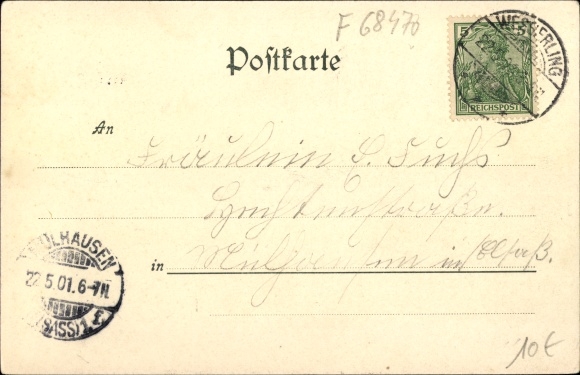 F 68470
Postkarte
5
REICHSPOST
WESSERLING
An
Fräulein E. Fuchs
in Mülhausen im Elsaß.
MÜLHAUSEN
22.5.01.6-7N.
(ELSASS) 1.
10€